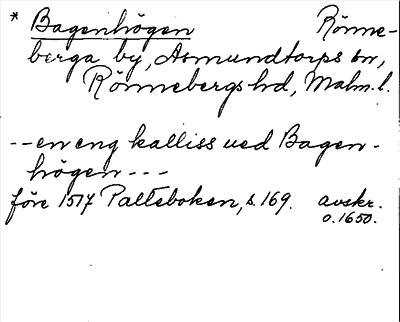 * Bagenhögen Rönne-
berga by, Asmundtorps sn,
Rönnebergs hd, Malm. l.
-- en eng kalliss ued Bagen-
högen ---
före 1517 Palteboken, s. 169. avskr.
o. 1650.